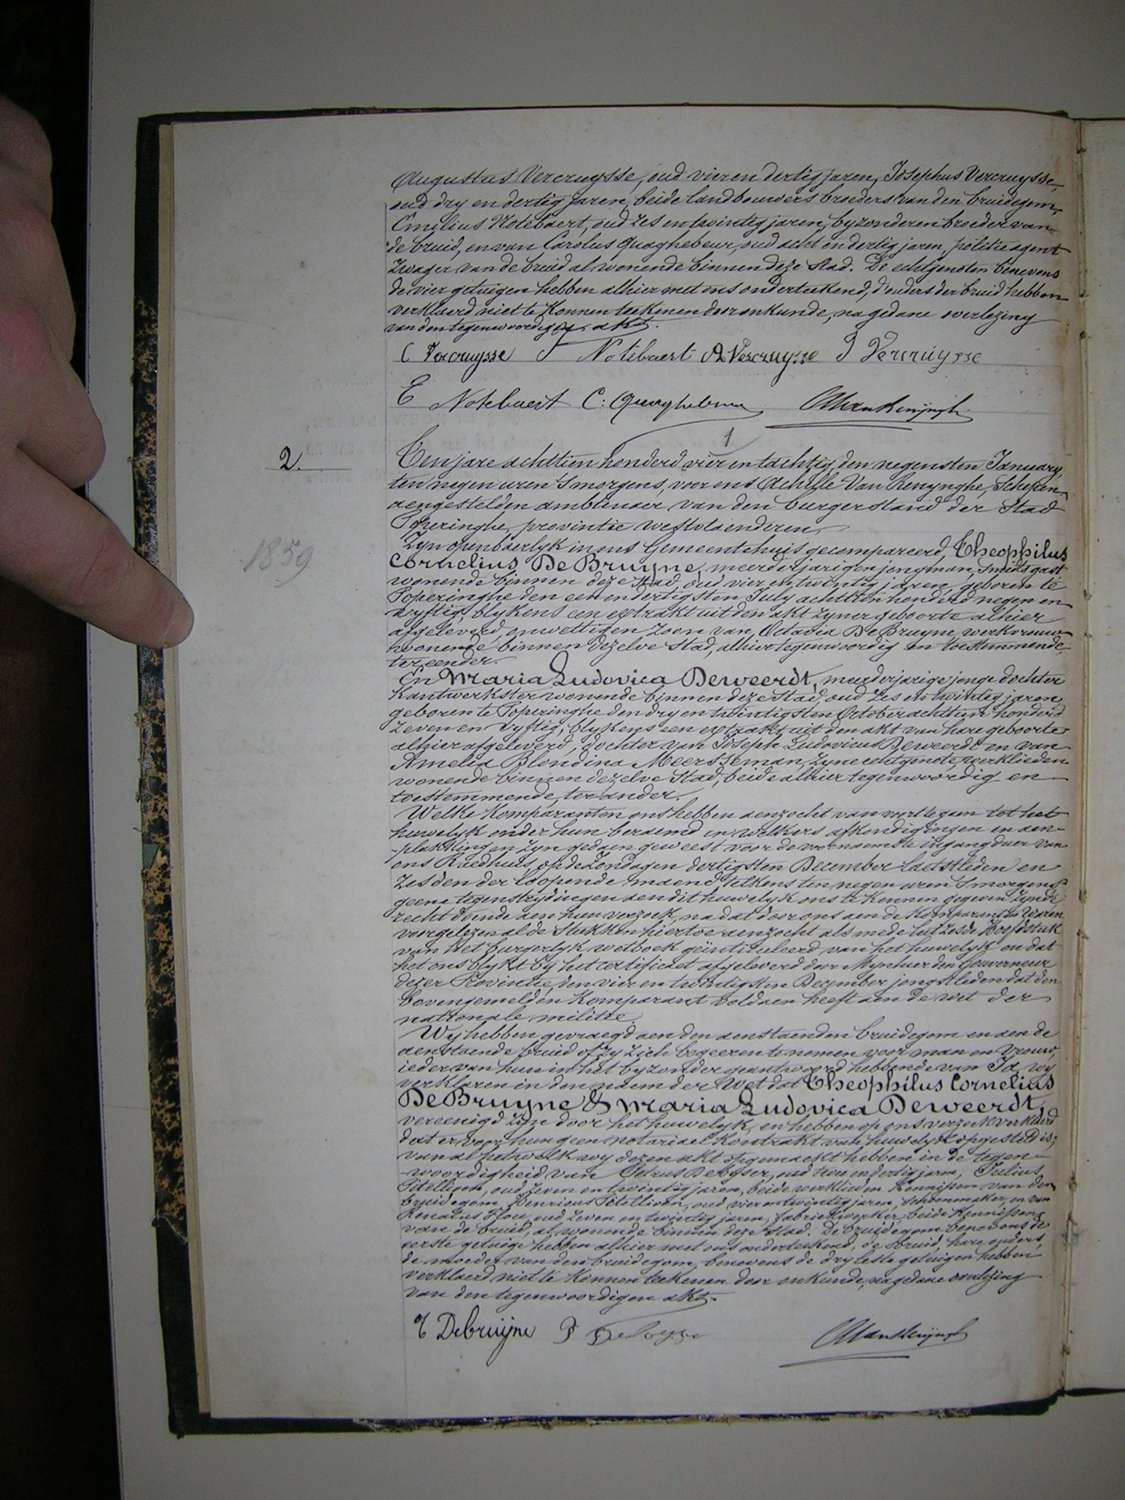 Augustus Vercruysse, oud vier en dertig jaren, Josephus Vercruysse,
oud dry en dertig jaren, beide landbouwers broeders van den bruidegom,
Emilius Notebaert, oud zes en twintig jaren, byzonderen broeder van
de bruid, en van Carolus Quaghebeur, oud acht en dertig jaren, politie agent
Zwager van de bruid al wonende binnen deze stad. De echtgenoten benevens
de vier getuigen hebben alhier met ons onderteekend, d'ouders der bruid hebben
verklaerd niet te konnen teekenen door onkunde, na gedane voorlezing
van den tegenwoordigen akt.
C Vercruysse Notebaert A Vercruysse J Vercruysse
E Notebaert C: Quaghebeur
1
2.
Ten jare achttien honderd vier en tachtig, den negensten January,
ten negen uren s'morgens, voor ons Achille Van Renynghe, Schepen,
aengestelden ambtenaer van den burgerstand der Stad
Poperinghe, provintie westvlaenderen,
Zyn openbaerlyk in ons Gemeentehuis gecompareerd, Theophilus
1859
Cornelius De Bruyne, meerderjarigen jongman, smids gast
wonende binnen deze stad, oud vier en twintig jaren, geboren te
Poperinghe den een en dertigsten July achttien honderd negen en
vyftig, blykens een extrakt uit den akt zyner geboorte alhier
afgeleverd, onwettigen zoon van Octavia De Bruyne, werkvrouw
woonende binnen dezelve stad, alhier tegenwoordig en toestemmende,
ter eender.
En Maria Ludovica Deweerdt, meerderjarige jonge dochter
kantwerkster wonende binnen deze stad, oud zes en twintig jaren,
geboren te Poperinghe den dry en twintigsten October achttien honderd
zeven en vyftig, blykens een extrakt uit den akt van hare geboorte
alhier afgeleverd, dochter van Joseph Ludovicus Deweerdt en van
Amelia Blondina Meersseman, zyne echtgenote, werklieden
wonende binnen dezelve stad, beide alhier tegenwoordig en
toestemmende, ter ander.
Welke komparanten ons hebben aenzocht van voorts te gaen tot het
huwelyk onder hun beraemd en welkers afkondigingen en aen-
plakking en zyn gedaen geweest voor de voornaemste ingangdeur van
ons Raedhuis, op de zondagen dertigsten December laetstleden en
zesden der loopende maend telkens ten negen uren s'morgens
geene tegenstrydingen aen dit huwelyk ons te kennen gegeven zynde
recht doende aen hun verzoek, na dat door ons aen de komparanten waren
voorgelezen al de stukken hiertoe aenzocht als mede het zesde Hoofdstuk
van het burgerlyk wetboek geintituleerd van het huwelyk en dat
het ons blykt by het certificaet afgeleverd door Mynheer den Gouverneur
dezer Provintie, den vier en twintigsten December jongstleden dat den
bovengemelden komparant voldaen heeft aen de wet der
nationale militie.
Wij hebben gevraegd aen den aenstaenden bruidegom en aen de
aenstaende bruid of zy zich begeeren te nemen voor man en vrouw,
ieder van hun in het byzonder geantwoord hebbende van Ja, wij
verklaren in den naem der Wet dat Theophilus Cornelius
De Bruyne & Maria Ludovica Deweerdt,
vereenigd zyn door het huwelyk, en hebben op ons verzoek verklaerd
dat er voor hun geen notariael kontrakt van huwelyk opgesteld is;
van al hetwelk wy dezen akt opgemaekt hebben in de tegen-
woordigheid van Petrus Debyser, oud en dertig jaren, Julius
Titellioen, oud zeven en twintig jaren, beide werklieden kennissen van den
bruidegom, Henricus Titellioen, oud vier en twintig jaren, schoenmaker, en van
oud zeven en twintig jaren, fabriekwerker, beide kennissen
van de bruid, al wonende binnen deze stad. De bruidegom benevens de
eerste getuige hebben alhier met ons onderteekend, de bruid, hare ouders,
de moeder van den bruidegom, benevens de dry leste getuigen hebben
verklaerd niet te konnen teekenen door onkunde, na gedane voorlezing
van den tegenwoordigen akt.
T Debruyne P Debyser